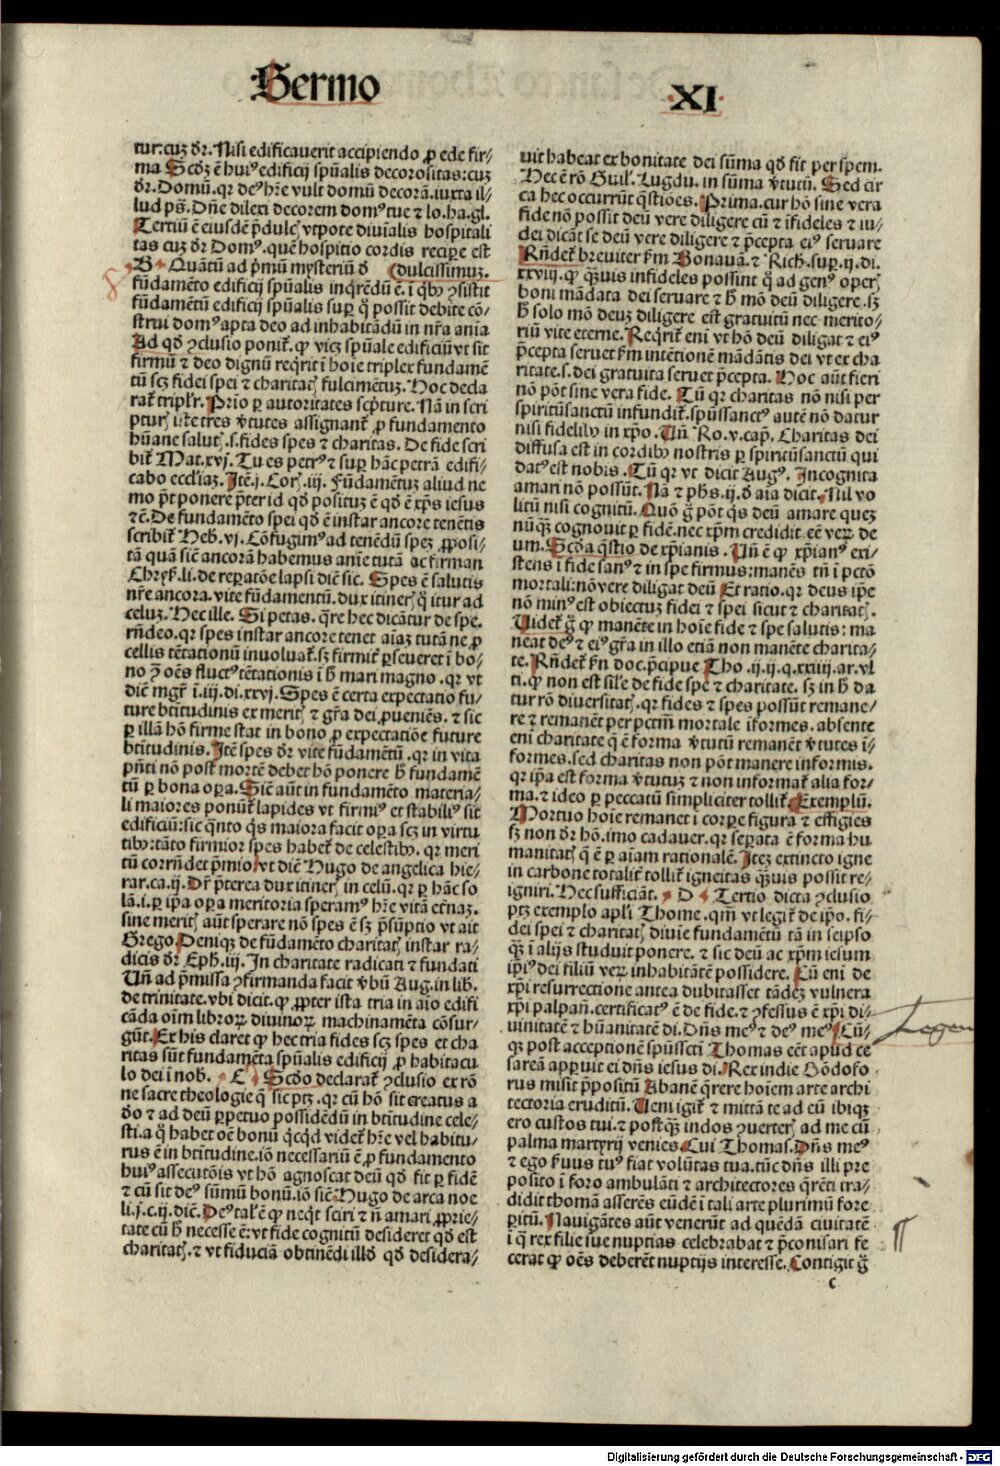 Sermo
XI
tur. cuȝ dr̄. Nisi edificauerit accipiendo ꝓ ede fir⸗
ma Scd̓ȝ ē huiꝰ edificij spūalis decorositas: cuȝ
dr̄. Domū. qr deꝰ hr̄e vult domū decorā. iuxta il⸗
lud pṡ. Dn̄e dilexi decorem domꝰ tue ⁊ lo. ha. gl.
Tertiū ē eiusdē p̄dulcꝭ vtpote diuialis hospitali
tas cuȝ dr̄ Domꝰ. quē hospitio cordis recipe est
B Quātū ad p̄mū mysteriū d̓ dulcissimuȝ.
fūdamēto edificij spūalis inqrēdū ē. i qbꝰ ꝯsistit
fūdamētū edificij spūalis suꝑ q̄ possit debite cō⸗
strui domꝰ apta deo ad inhabitādū in nr̄a anīa
Ad qd̓ ꝯclusio ponit̄. ꝙ vicȝ spūale edificiū vt sit
firmū ⁊ deo dignū reqrit ī hoīe triplex fundamē
tū scȝ fidei spei ⁊ charitatꝭ fulcimētuȝ. Hoc decla
rat̄ tripl'r. Prīo ꝑ autoritates scp̄ture. Nā in scri
pturꝭ iste tres v̄tutes assignant̄ ꝓ fundamento
hūane salutꝭ. s. fides spes ⁊ charitas. De fide scri
bit̄ Mat. xvj. Tu es petrꝰ ⁊ suꝑ hāc petrā edifi⸗
cabo eccl'iaȝ. Itē. j. Corꝭ. iij. Fūdamētuȝ aliud ne
mo pt̄ ponere p̄ter id qd̓ posituȝ ē qd̓ ē xp̄s iesus
⁊c̄. De fundamēto spei qd̓ ē instar ancore tenētis
scribit̄ Heb. vj. Cōfugimꝰ ad tenēdū speȝ ꝓposi⸗
tā quā sic̄ ancorā habemus anīe tutā ac firmam
Chryꝭ. li. de reꝑatōe lapsi dic̄ sic. Spes ē salutis
nr̄e ancora. vite fūdamentū. dux itinerꝭ q̄ itur ad
celuȝ. Hec ille. Si petas. qre hec dicātur de spe.
rn̄deo. qr spes instar ancore tenet aīaȝ tutā ne ꝓ
cellis tētationū inuoluat̄. sȝ firmit̄ ꝑseueret ī bo⸗
no ꝫ oēs fluctꝰ tētationis ī h̄ mari magno. qr vt
dic̄ mgr̄ ī. iij. di. xxvj. Spes ē certa expectatio fu⸗
ture btītudinis ex meritꝭ ⁊ gr̄a dei ꝓueniēs. ⁊ sic
ꝑ illā hō firme stat in bono ꝓ expectatiōe future
btītudinis. Itē spes dr̄ vite fūdamētū. qr in vita
pn̄ti nō post mortē debet hō ponere h̄ fundamē
tū ꝑ bona oꝑa. Sic̄ aūt in fundamēto materia⸗
li maiores ponūt̄ lapides vt firmiꝰ et stabiliꝰ sit
edificiū: sic qnto qs maiora facit oꝑa scȝ in virtu
tibꝰ: tāto firmior spes habet̄ de celestibꝰ. qr meri
tū corrn̄det p̄mio vt dic̄ Hugo de angelica hie⸗
rar. ca. ij. Dr̄ p̄terea dux itinerꝭ in celū. qr ꝑ hāc so
lā. i. ꝑ ip̄a oꝑa meritoria speramꝰ hr̄e vitā et̄naȝ.
sine meritꝭ aūt sperare nō spes ē sȝ p̄sūptio vt ait
Grego Deniqȝ de fūdamēto charitatꝭ instar ra⸗
dicis dr̄ Eph. iij. In charitate radicati ⁊ fundati
Vn̄ ad p̄missa ꝯfirmanda facit v̄bū Aug. in lib.
de trinitate. vbi dicit. ꝙ ꝓpter ista tria in aīo edifi
cāda oīm libroꝝ diuinoꝝ machinamēta cōsur⸗
gūt. Ex his claret ꝙ hec tria fides scȝ spes et cha
ritas sūt fundamēta spūalis edificij ꝓ habitacu
lo dei ī nob. C Scd̓o declarat̄ ꝯclusio ex rō
ne sacre theologie q̄ sic ptȝ. qr cū hō sit creatus a
d̓o ⁊ ad deū ꝑpetuo possidēdū in btītudine cele⸗
sti. a q̄ habet oē bonū qcqd videt̄ hr̄e vel habitu⸗
rus ē in btītudine. iō necessariū ē ꝓ fundamento
huiꝰ assecutōis vt hō agnoscat deū qd̓ fit ꝑ fidē
⁊ cū sit deꝰ sūmū bonū. iō sic̄ Hugo de arca noe
li. j. c. ij. dic̄. Deꝰ tal' ē ꝙ neqt sciri ⁊ n̄ amari ꝓprie⸗
tate cū h̄ necesse ē: vt fide cognitū desideret qd̓ est
charitatꝭ. ⁊ vt fiduciā obtinēdi illd̓ qd̓ desidera⸗
uit habeat ex bonitate dei sūma qd̓ fit per spem.
Hec ē rō Guil'. Lugdu. in sūma v̄tutū. Sed cir
ca hec occurrūt q̄stiōes. Prima. cur hō sine vera
fide nō possit deū vere diligere cū ⁊ īfideles ⁊ iu⸗
dei dicāt se deū vere diligere ⁊ p̄cepta eiꝰ seruare
Rn̄det̄ breuiter ẜm Bonauā. ⁊ Rich. suꝑ. ij. di.
xxviij. ꝙ q̄ȝuis infideles possint q̄ ad genꝰ operꝭ
boni mādata dei seruare ⁊ h̄ mō deū diligere. sȝ
h̄ solo mō deuȝ diligere est gratuitū nec merito⸗
riū vite eterne. Reqrit̄ eni vt hō deū diligat ⁊ eiꝰ
p̄cepta seruet ẜm intētionē mādātis dei vt ex cha
ritate. s. dei gratuita seruet p̄cepta. Hoc aūt fieri
nō pōt sine vera fide. Tū qr charitas nō nisi per
spiritūsanctū infundit̄. spūssanctꝰ autē nō datur
nisi fidelibꝰ in xp̄o. Vn̄ Ro. v. cap. Charitas dei
diffusa est in cordibꝰ nostris ꝑ spiritūsanctū qui
datꝰ est nobis. Tū qr vt dicit Augꝰ. Incognita
amari nō possūt. Nā ⁊ phs. ij. d̓ aīa dicit. Nil vo
litū nisi cognitū. Quō g̊ pōt qs deū amare queȝ
nūqȝ cognouit ꝑ fidē. nec xp̄m credidit eē veꝝ de
um. Scd̓a q̄stio de xp̄ianis. Vn̄ ē ꝙ xp̄ianꝰ exi⸗
stens ī fide sanꝰ ⁊ in spe firmus: manēs tn̄ ī pctō
mortali: nō vere diligat deū Et ratio. qr deus ip̄e
nō minꝰ est obiectuȝ fidei ⁊ spei sicut ⁊ charitatꝭ.
Videt̄ g̊ ꝙ manēte in hoīe fide ⁊ spe salutis: ma
neat deꝰ ⁊ eiꝰ gr̄a in illo etiā non manēte charita⸗
te. Rn̄det̄ ẜm doc. p̄cipue Tho. ij. ij. q. xxiiij. ar. vl
ti. ꝙ non est sil'e de fide spe ⁊ charitate. sȝ in h̄ da
tur rō diuersitatꝭ. qr fides ⁊ spes possūt remane⸗
re ⁊ remanēt per pctm̄ mortale īformes. absente
eni charitate q̄ ē forma v̄tutū remanēt v̄tutes ī⸗
formes. sed charitas non pōt manere informis.
qr ip̄a est forma v̄tutuȝ ⁊ non informat̄ alia for⸗
ma. ⁊ ideo ꝑ peccatū simpliciter tollit̄. Exemplū.
Mortuo hoīe remanet ī corꝑe figura ⁊ effigies
sȝ non dr̄ hō. imo cadauer. qr seꝑata ē forma hu
manitatꝭ q̄ ē ꝑ aīam rationalē. Iteȝ extincto igne
in carbone totalit̄ tollit̄ igneitas q̄ȝuis possit re⸗
igniri. Hec sufficiāt. D Tertio dicta ꝯclusio
ptȝ exemplo apl'i Thome. qm̄ vt legit̄ de ip̄o. fi⸗
dei spei ⁊ charitatꝭ diuīe fundamētū tā in seipso
q̄ȝ ī alijs studuit ponere. ⁊ sic deū ac xp̄m iesum
ip̄iꝰ dei filiū veꝝ inhabitātē possidere. Cū eni de
xp̄i resurrectione antea dubitasset tādeȝ vulnera
xp̄i palpan̄. certificatꝰ ē de fide. ⁊ ꝯfessus ē xp̄i di⸗
uinitatē ⁊ hūanitatē di. Dn̄s meꝰ ⁊ deꝰ meꝰ Cū⸗
qȝ post acceptionē spūsscti Thomas eēt apud ce
sareā apꝑuit ei dn̄s iesus di. Rex indie Gōdofo⸗
rus misit p̄positū Abanē q̄rere hoīem arte archi
tectoria eruditū. Veni igit̄ ⁊ mittā te ad eū ibiqȝ
ero custos tui. ⁊ postq̄ȝ indos ꝯuerterꝭ ad me cū
palma martyrij venies. Cui Thomas. Dn̄s meꝰ
⁊ ego ẜuus tuꝰ fiat volūtas tua. tūc dn̄s illi pre
posito ī foro ambulāti ⁊ architectores q̄rēti tra⸗
didit thomā asserēs eūdē ī tali arte plurimū fore
ꝑitū. Nauigātes aūt venerūt ad quēdā ciuitatē
ī q̄ rex filie sue nuptias celebrabat ⁊ p̄conisari fe
cerat ꝙ oēs deberēt nuptijs interesse. Contigit g̊
c
Digitalisierung gefördert durch die Deutsche Forschungsgemeinschaft - DFG